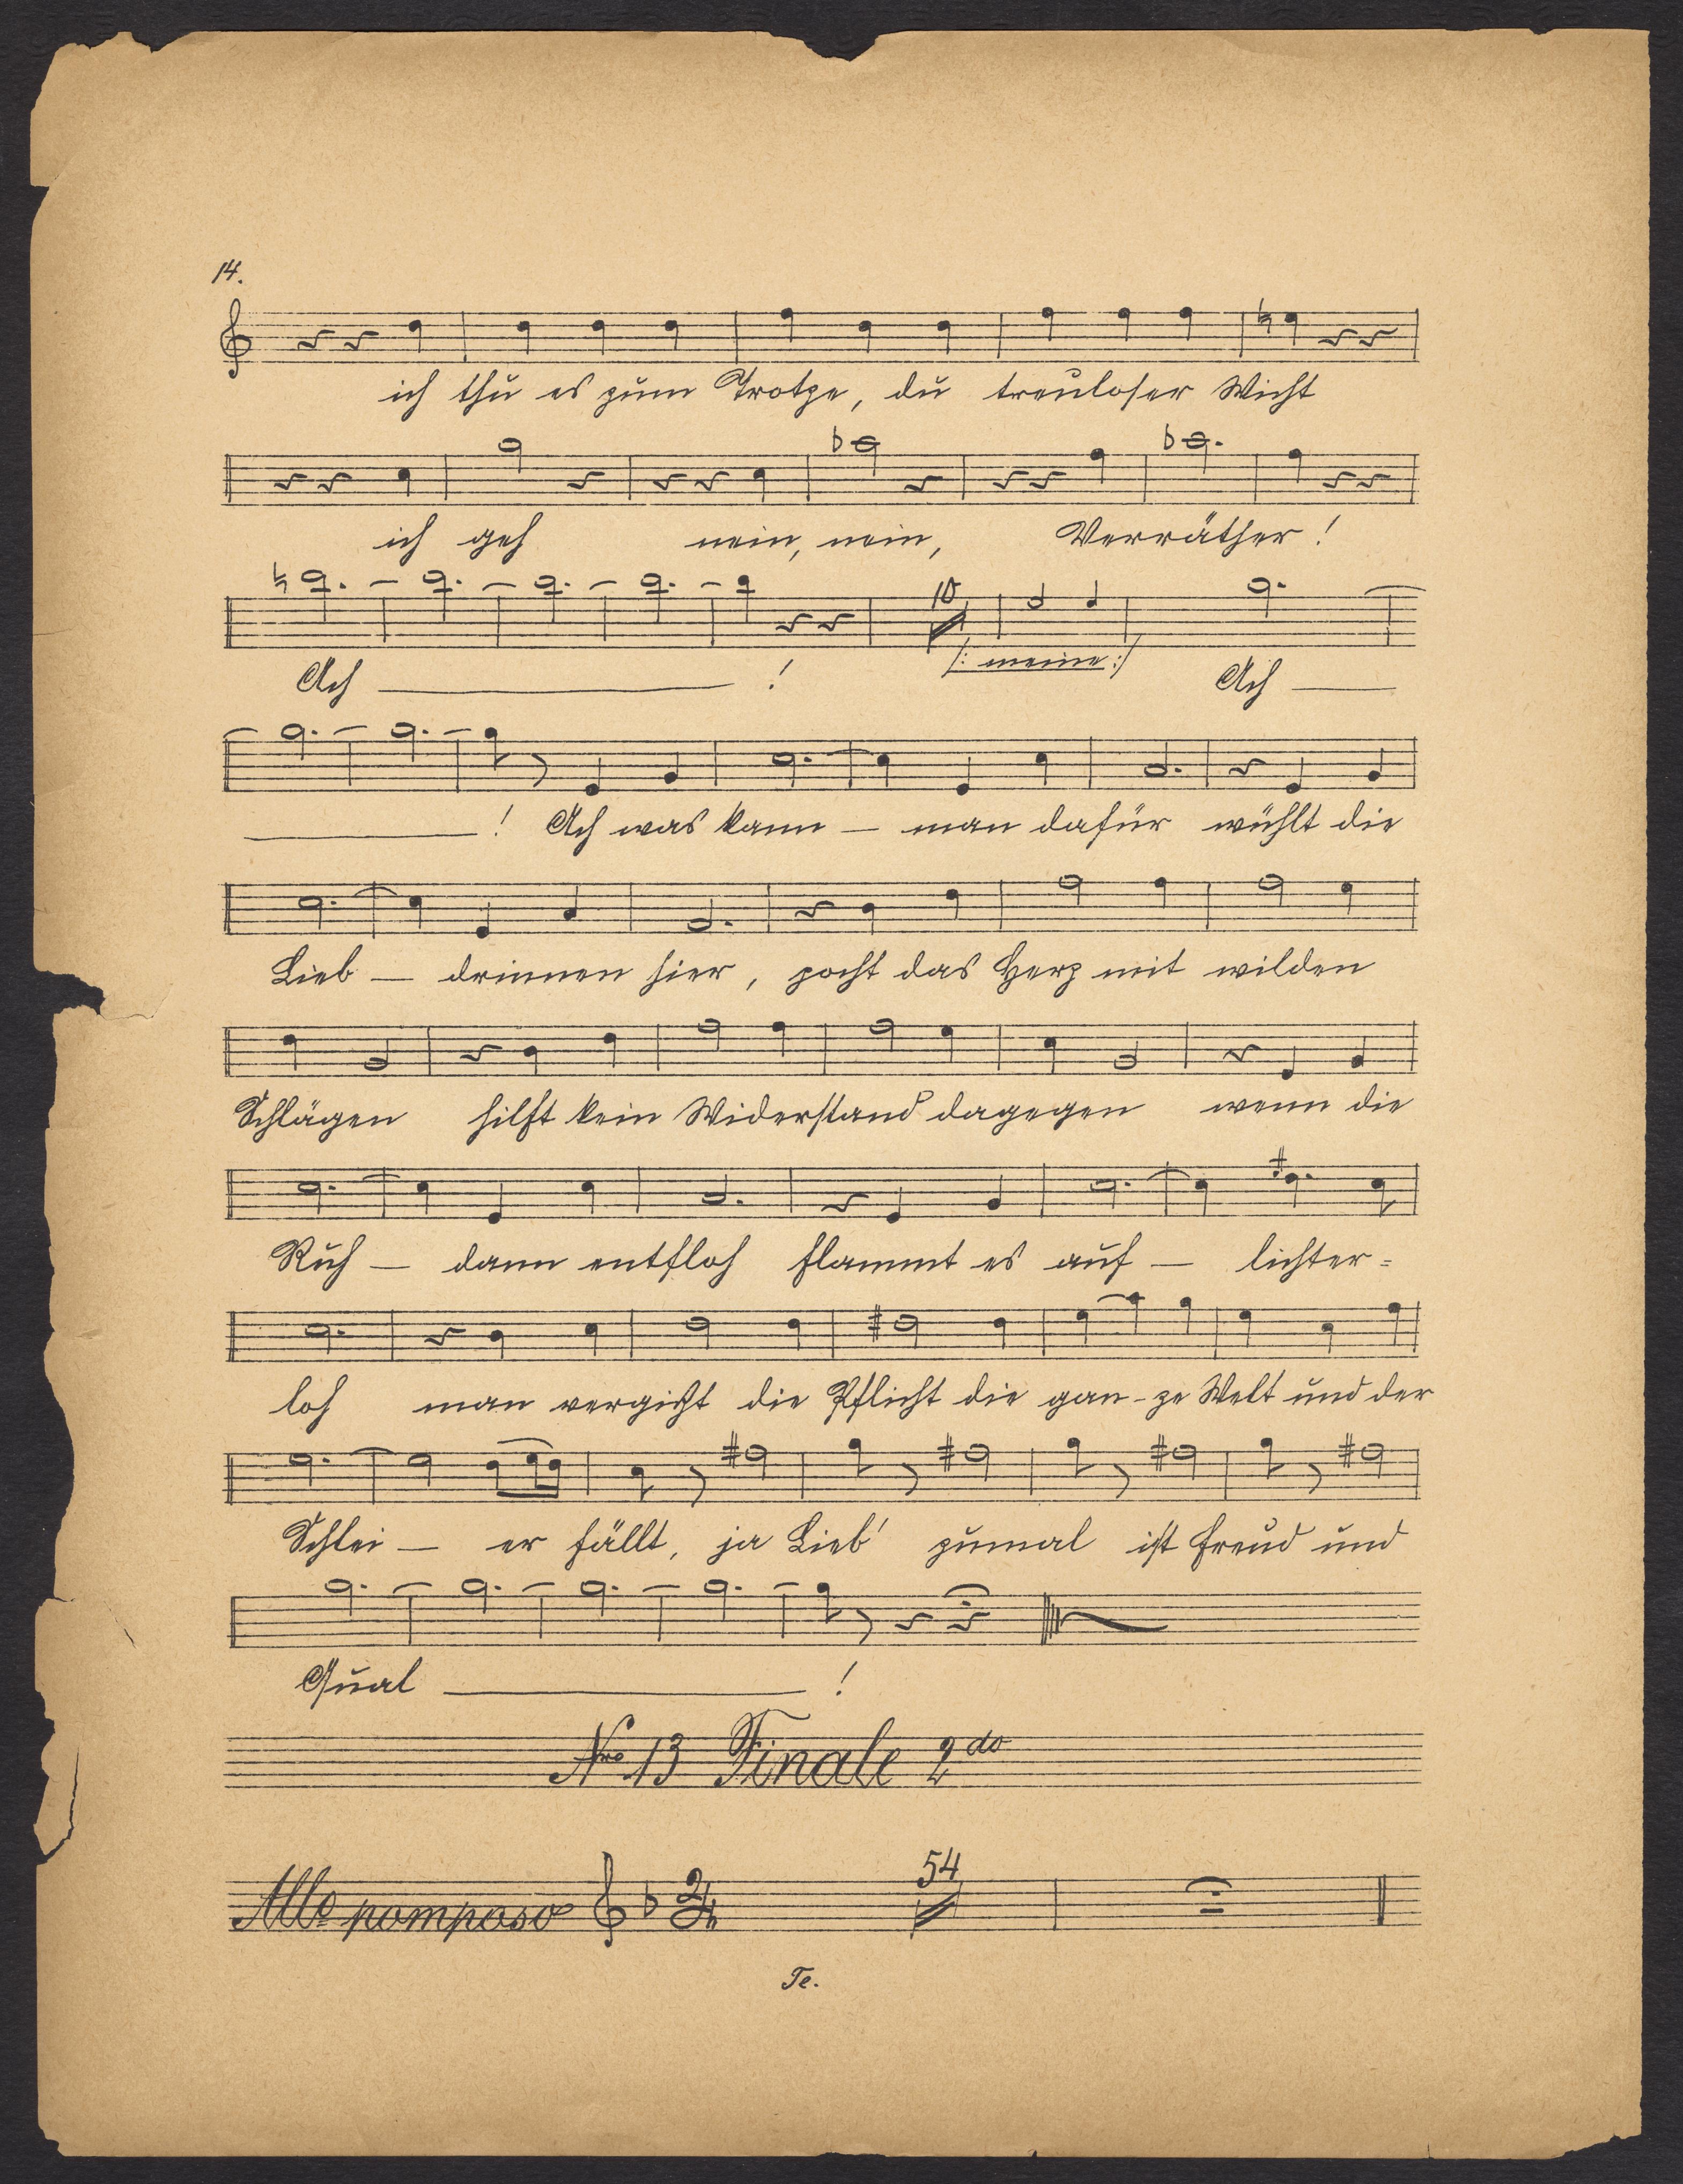 14.
ich thu es zum Trotze, du treuloser Wicht
ich geh nein, nein, Verräther!
10
Ach — ! /: meine :/ Ach —
— ! Ach was kann — man dafür wühlt die
Lieb — drinnen hier, pocht das Herz mit wilden
Schlägen hilft kein Widerstand dagegen wenn die
Ruh — dann entfloh flammt es auf — lichter=
loh man vergißt die Pflicht die gan-ze Welt und der
Schlei — er fällt, ja Lieb' zumal ist Freud und
Qual — !
Nro 13 Finale 2do
54
Allo pomposo 2/4
Te.